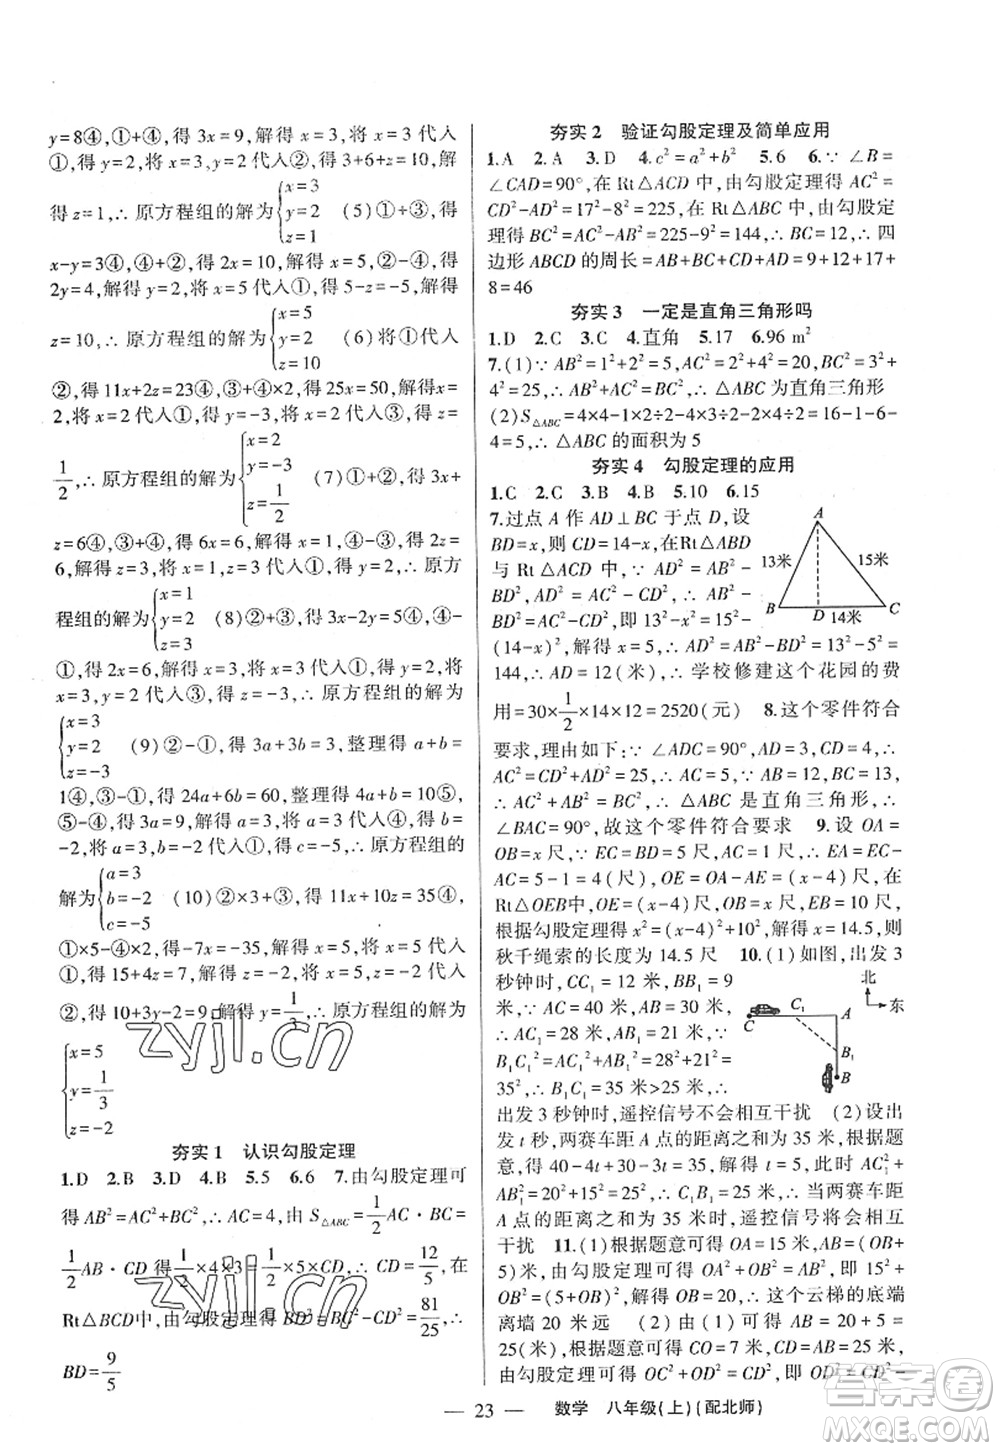 y=8④,①+④,得 3x=9,解得 x=3,将 x=3 代人
①,得 y=2,将 x=3,y=2 代人②,得 3+6-z=8,解
得 z=1,∴ 原方程组的解为{x=3 y=2 z=1 (5)①+③,得
x-y=3④,④+②,得 2x=10,解得 x=5,④-②,得
2y=4,解得 y=2,将 x=5,y=2 代人①,得
z=10,∴ 原方程组的解为{x=5 y=2 z=10 (6)将①代人
②,得 11x+2z=23④,④+③×2,得 25x=50,解得x=
2,将 x=2 代人①,得 y=-3,将 x=2 代人③,得 z=
1/2,∴ 原方程组的解为{x=2 y=-3 z=1/2 (7)①+②,得 3x+
z=6④,①+③,得 6x=6,解得 x=1,④-③,得 2z=
6,解得 z=3,将 x=1,z=3 代人①,得 y=2,∴ 原方
程组的解为{x=1 y=2 z=3 (8)②+③,得 3x-2y=5④,④-
①,得 2x=6,解得 x=3,将 x=3 代人①,得 y=2,将
x=3,y=2 代人②,得 z=-3,∴ 原方程组的解为
{x=3 y=2 z=-3 (9)②-①,得 3a+3b=3,整理得 a+b=
1④,③-①,得 24a+6b=60,整理得 4a+b=10⑤,
⑤-④,得 3a=9,解得 a=3,将 a=3 代人④,得 b=
-2,将 a=3,b=-2 代人①,得 c=-5,∴ 原方程组的
解为{a=3 b=-2 c=-5 (10)②×3+③,得 11x+10z=35④,
①×5-④×2,得-7x=-35,解得 x=5,将 x=5 代人
①,得 15+4z=7,解得 z=-2,将 x=5,z=-2 代人
②,得 10+3y-2=9,解得 y=1/3,∴ 原方程组的解为
{x=5 y=1/3 z=-2
夯实 1 认识勾股定理
1.D 2.B 3.D 4.B 5.5 6.6 7.由勾股定理可
得 AB²=AC²+BC²,∴ AC=4,由 S△ABC=1/2AC·BC=
1/2AB·CD 得1/2×4×3=1/2×5×CD,∴ CD=12/5,在
Rt△BCD中,由勾股定理得 BD²=BC²-CD²=81/25,∴
BD=9/5
夯实 2 验证勾股定理及简单应用
1.A 2.A 3.D 4.c²=a²+b² 5.6 6.∵ ∠B=
∠CAD=90°,在 Rt△ACD 中,由勾股定理得 AC²=
CD²-AD²=17²-8²=225,在 Rt△ABC 中,由勾股定
理得 BC²=AC²-AB²=225-9²=144,∴ BC=12,∴ 四
边形 ABCD 的周长=AB+BC+CD+AD=9+12+17+
8=46
夯实 3 一定是直角三角形吗
1.D 2.C 3.C 4.直角 5.17 6.96 m²
7.(1)∵ AB²=1²+2²=5,AC²=2²+4²=20,BC²=3²+
4²=25,∴ AB²+AC²=BC²,∴ △ABC 为直角三角形
(2)S△ABC=4×4-1×2÷2-4×3÷2-2×4÷2=16-1-6-
4=5,∴ △ABC 的面积为 5
夯实 4 勾股定理的应用
1.C 2.C 3.B 4.B 5.10 6.15
7.过点 A 作 AD⊥BC 于点 D,设
BD=x,则 CD=14-x,在Rt△ABD
与 Rt△ACD 中,∵ AD²=AB²-
BD²,AD²=AC²-CD²,∴ AB²-BD²
=AC²-CD²,即 13²-x²=15²-
(14-x)²,解得 x=5,∴ AD²=AB²-BD²=13²-5²=
144,∴ AD=12(米),∴ 学校修建这个花园的费
用=30×1/2×14×12=2520(元) 8.这个零件符合
要求,理由如下:∵ ∠ADC=90°,AD=3,CD=4,∴
AC²=CD²+AD²=25,∴ AC=5,∵ AB=12,BC=13,
∴ AC²+AB²=BC²,∴ △ABC 是直角三角形,∴
∠BAC=90°,故这个零件符合要求 9.设 OA=
OB=x 尺,∵ EC=BD=5 尺,AC=1 尺,∴ EA=EC-
AC=5-1=4(尺),OE=OA-AE=(x-4)尺,在
Rt△OEB中,OE=(x-4)尺,OB=x 尺,EB=10 尺,
根据勾股定理得 x²=(x-4)²+10²,解得 x=14.5,则
秋千绳索的长度为 14.5 尺 10.(1)如图,出发 3
秒钟时,CC₁=12 米,BB₁=9
米,∵ AC=40 米,AB=30 米,
∴ AC₁=28 米,AB₁=21 米,∴
B₁C₁²=AC₁²+AB₁²=28²+21²=
35²,∴ B₁C₁=35 米>25 米,∴
出发 3 秒钟时,遥控信号不会相互干扰 (2)设出
发 t 秒,两赛车距 A 点的距离之和为 35 米,根据题
意,得 40-4t+30-3t=35,解得 t=5,此时 B₁C₁²=AC₁²
+AB₁²=20²+15²=25²,∴ B₁C₁=25米,∴ 当两赛车距
A 点的距离之和为 35 米时,遥控信号将会产生相互
干扰 11.(1)根据题意可得 OA=15 米,AB-OB=
5 米,由勾股定理可得 OA²+OB²=AB²,即 15²+
OB²=(5+OB)²,解得 OB=20,∴ 这个云梯的底端
离墙 20 米远 (2)由(1)可得 AB=20+5=
25(米),根据题意可得 CO=7(米),CD=AB=25米,
由勾股定理可得 OC²+OD²=CD²,即 OD²=CD²-
A
13米
15米
B
D
14米
C
北
东
C
C₁
A
B₁
B
zyjl.cn
zyjl.cn
答案圈
— 23 — 数学 八年级(上)(配北师)